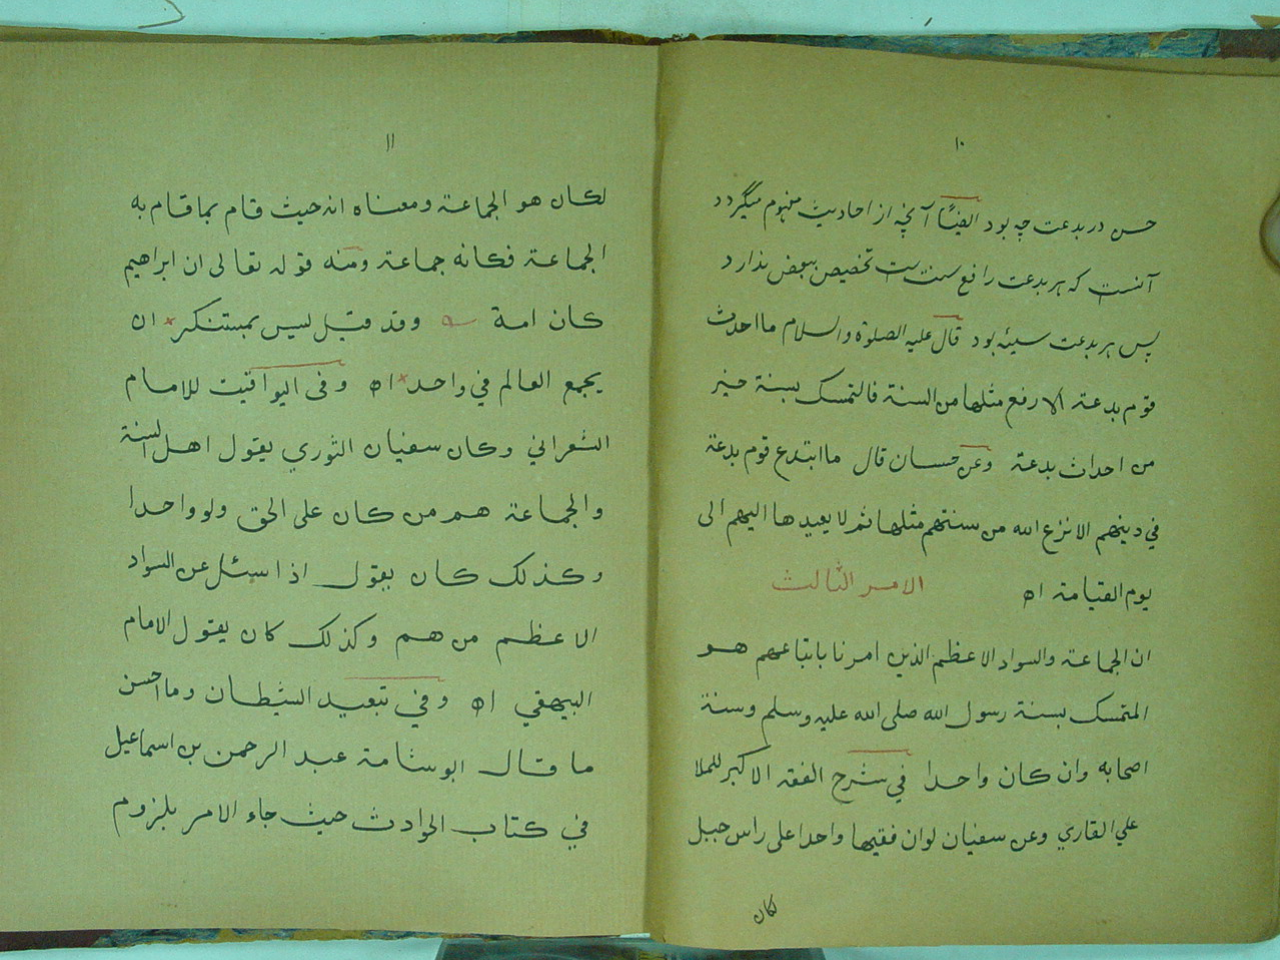 ١٠
حسن در بدعت چه بود ايضًا آنچه از احاديث مفهوم ميگردد
آنست كه هر بدعت رافع سنت ست تخصيص ببعض ندارد
پس هر بدعت سيئه بود قال عليه الصلوة والسلام ما احدث
قوم بدعة الا رفع مثلها من السنة فالتمسك بسنة خير
من احداث بدعة وعن حسان قال ما ابتدع قوم بدعة
في دينهم الا نزع الله من سنتهم مثلها ثم لا يعيدها اليهم الى
يوم القيامة اه الامر الثالث
ان الجماعة والسواد الاعظم الذين امرنا باتباعهم هو
المتمسك بسنة رسول الله صلى الله عليه وسلم وسنة
اصحابه وان كان واحدا في شرح الفقه الاكبر للملا
علي القاري وعن سفيان لو ان فقيها واحدا على راس جبل
لكان
١١
لكان هو الجماعة ومعناه انه حيث قام بما قام به
الجماعة فكانه جماعة ومنه قوله تعالى ان ابراهيم
كان امة وقد قيل ليس بمستنكر ان
يجمع العالم في واحد اه وفى اليواقيت للامام
الشعراني وكان سفيان الثوري يقول اهل السنة
والجماعة هم من كان على الحق ولو واحدا
وكذلك كان يقول اذا سئل عن السواد
الاعظم من هم وكذلك كان يقول الامام
البيهقي اه وفي تبعيد الشيطان وما احسن
ما قال ابو شامة عبد الرحمن بن اسماعيل
في كتاب الحوادث حيث جاء الامر بلزوم